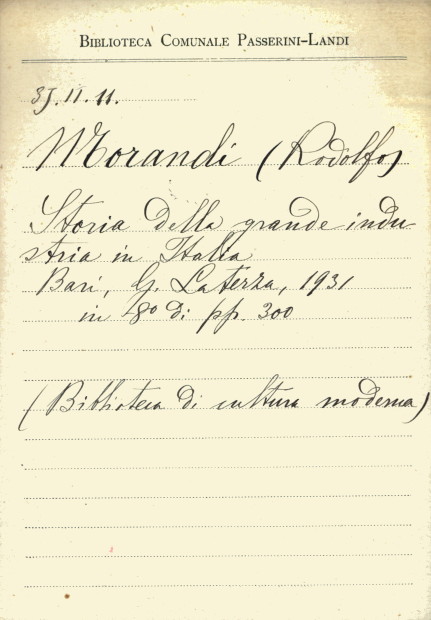 BIBLIOTECA COMUNALE PASSERINI-LANDI
3J.11.11.
Morandi (Rodolfo)
Storia della grande indu
stria in Italia
Bari, G. Laterza, 1931
in 8º di pp. 300
(Biblioteca di cultura moderna)